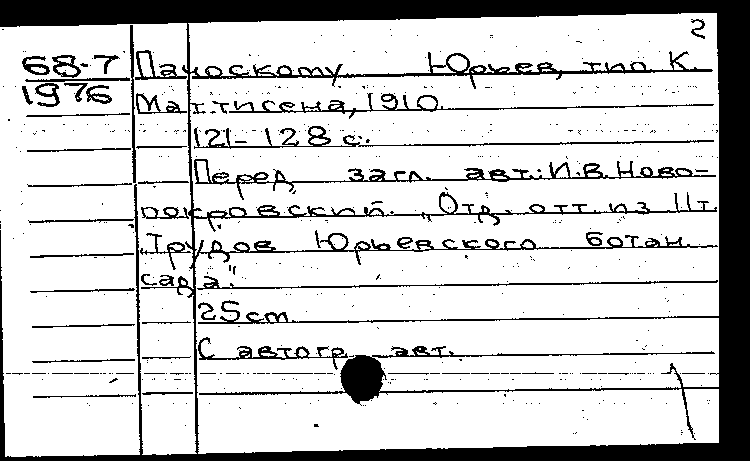 2
68-7 Пачоскому Юрьев, тип К.
1976 Маттисена, 1910.
121-128 с.
Перед загл. авт.: И.В. Ново-
покровский. „Отд. отт. из II т.
„Трудов Юрьевского ботан.
сада".
25 cm
С автогр. авт.